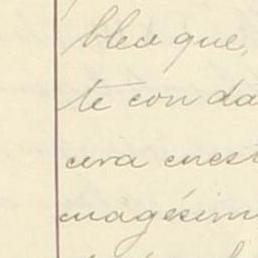 blea que,
te con da
cera cuest
cuagésim